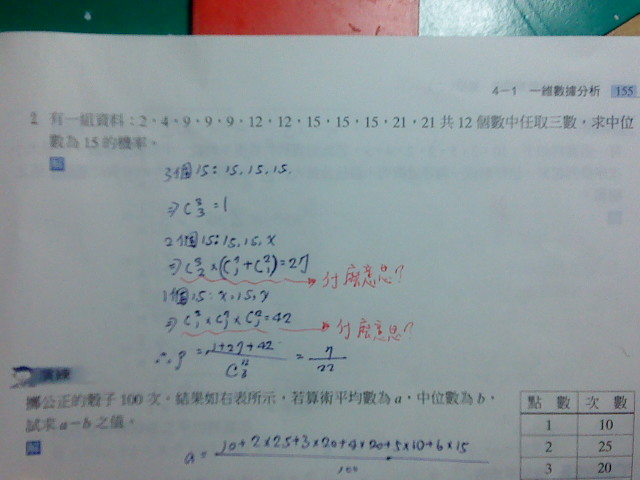 4-1 一維數據分析 155
2 有一組資料：2，4，9，9，9，12，12，15，15，15，21，21 共 12 個數中任取三數，求中位
數為 15 的機率。
解
3個15：15, 15, 15.
⇒ C³₃ = 1
2個15：15, 15, x
⇒ C³₂ × (C⁷₁ + C²₁) = 27
什麼意思？
1個15：x, 15, y
⇒ C³₁ × C⁷₁ × C²₁ = 42
什麼意思？
∴ P = (1+27+42)/C¹²₃ = 7/22
演練
擲公正的骰子 100 次，結果如右表所示，若算術平均數為 a，中位數為 b，
試求 a－b 之值。
解
a = (10+2×25+3×20+4×20+5×10+6×15)/100
點 數 次 數
1 10
2 25
3 20